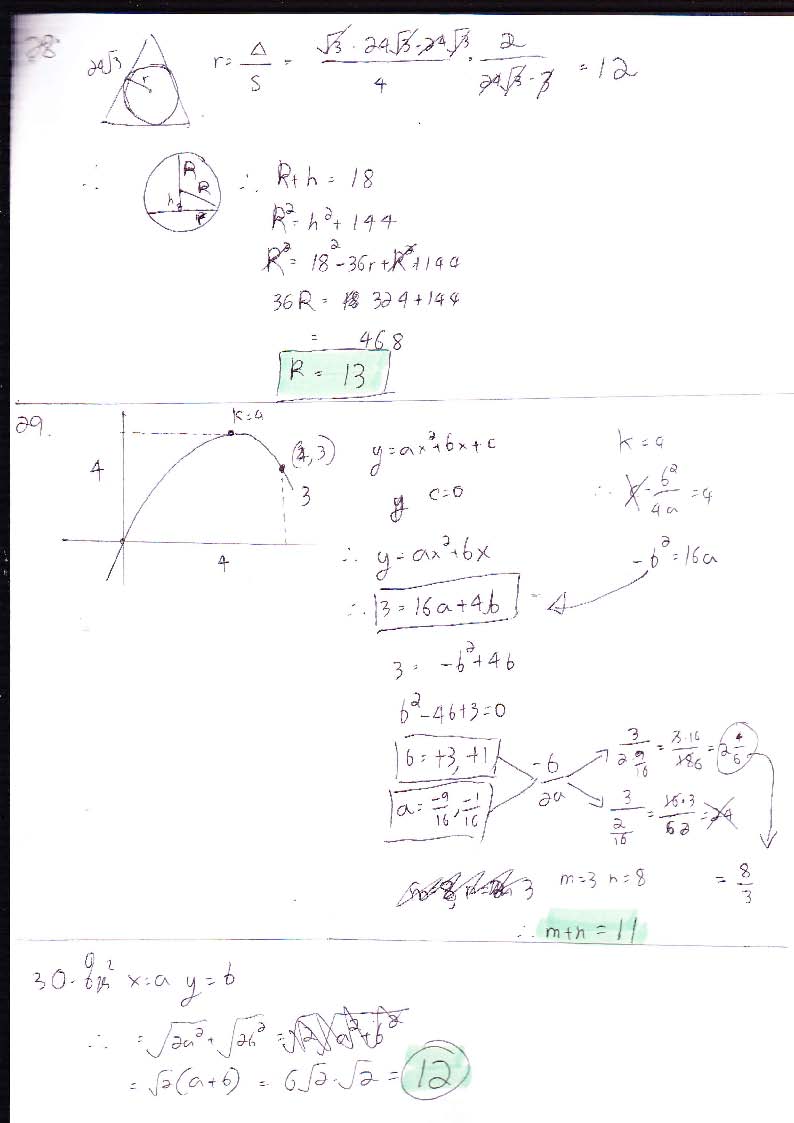 28
24√3 r
r = Δ/S = √3 · 24√3 · 24√3 / 4 · 2 / 24√3 · 3 = 12
∴ R R h r ∴ R + h = 18
R² = h² + 144
R² = 18² - 36r + R² + 144
36R = 324 + 144
= 468
R = 13
29.
k = 4
(4, 3)
4
3
4
y = ax² + bx + c
y c = 0
∴ y = ax² + bx
∴ 3 = 16a + 4b
3 = -b² + 4b
b² - 4b + 3 = 0
b = +3, +1
a = -9/16, -1/16
k = 4
∴ -b²/4a = 4
-b² = 16a
-b/2a
3 / 2 9/16 = 3·16 / 18 6 = 2 4/6
3 / 2/16 = 16·3 / 2 = 24
= 8/3
m = 3 n = 8
∴ m + n = 11
30. x = a y = b
∴ = √2a² + √2b² = √2 √a² + b²
= √2 (a + b) = 6√2 · √2 = 12